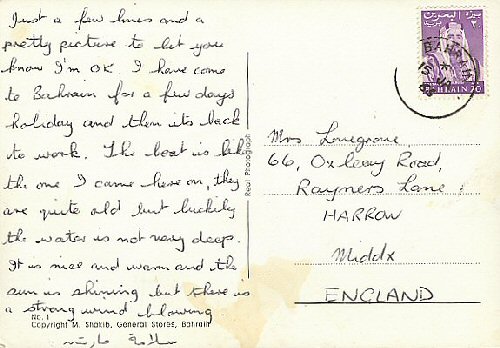 Just a few lines and a
pretty picture to let you
know I'm OK I have come
to Bahrain for a few days
holiday and then its back
to work. The boat is like
the one I came here on, they
are quite old but luckily
the water is not very deep.
It is nice and warm and the
sun is shining but there is
a strong wind blowing
NO. 1
Copyright M. Shakib, General Stores, Bahrain
سلامة
Real Photograph
البحرين
BAHRAIN
15
BAHRAIN 20
Mrs Lonegrove,
66, Oxleay Road,
Rayners Lane,
HARROW
Middx
ENGLAND